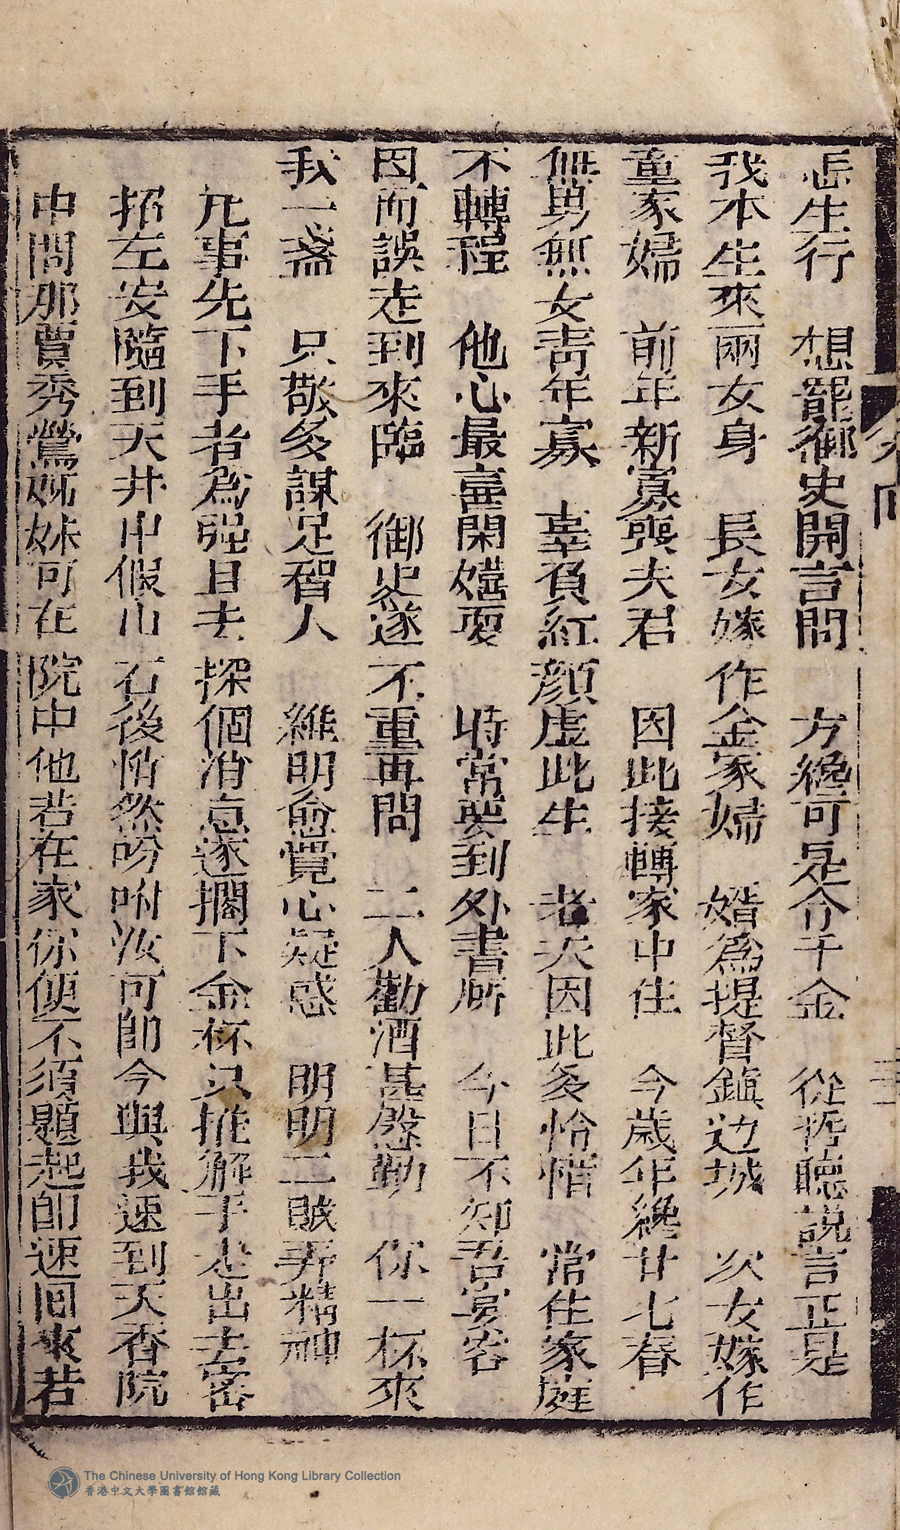 忐生行　想罷御史開言問　方纔可是令千金　從哲聽說言正是
我本生來兩女身　長女嫁作金家婦　婿為提督鎭边城　次女嫁作
童家婦　前年新寡喪夫君　因此接轉家中住　今歲年纔廿七春
無男無女青年寡　辜負紅顏虛此生　老夫因此多怜惜　常住家庭
不轉程　他心最喜閑嬉耍　時常要到外書房　今日不知吾宴客
因而誤走到來臨　御史遂不重再問　二人勸酒甚慇勤　你一杯來
我一盞　只敬多謀足智人　維明愈覺心疑惑　明明二賊弄精神
凢事先下手者為强且去探個消息遂擱下金杯只推解手走出去密
招左安隨到天井中假山石後悄然吩咐汝可即今與我速到天香院
中問那賈秀鶯姊妹可在院中他若在家你便不須題起即速回來若
卷
回
The Chinese University of Hong Kong Library Collection
香港中文大學圖書館館藏